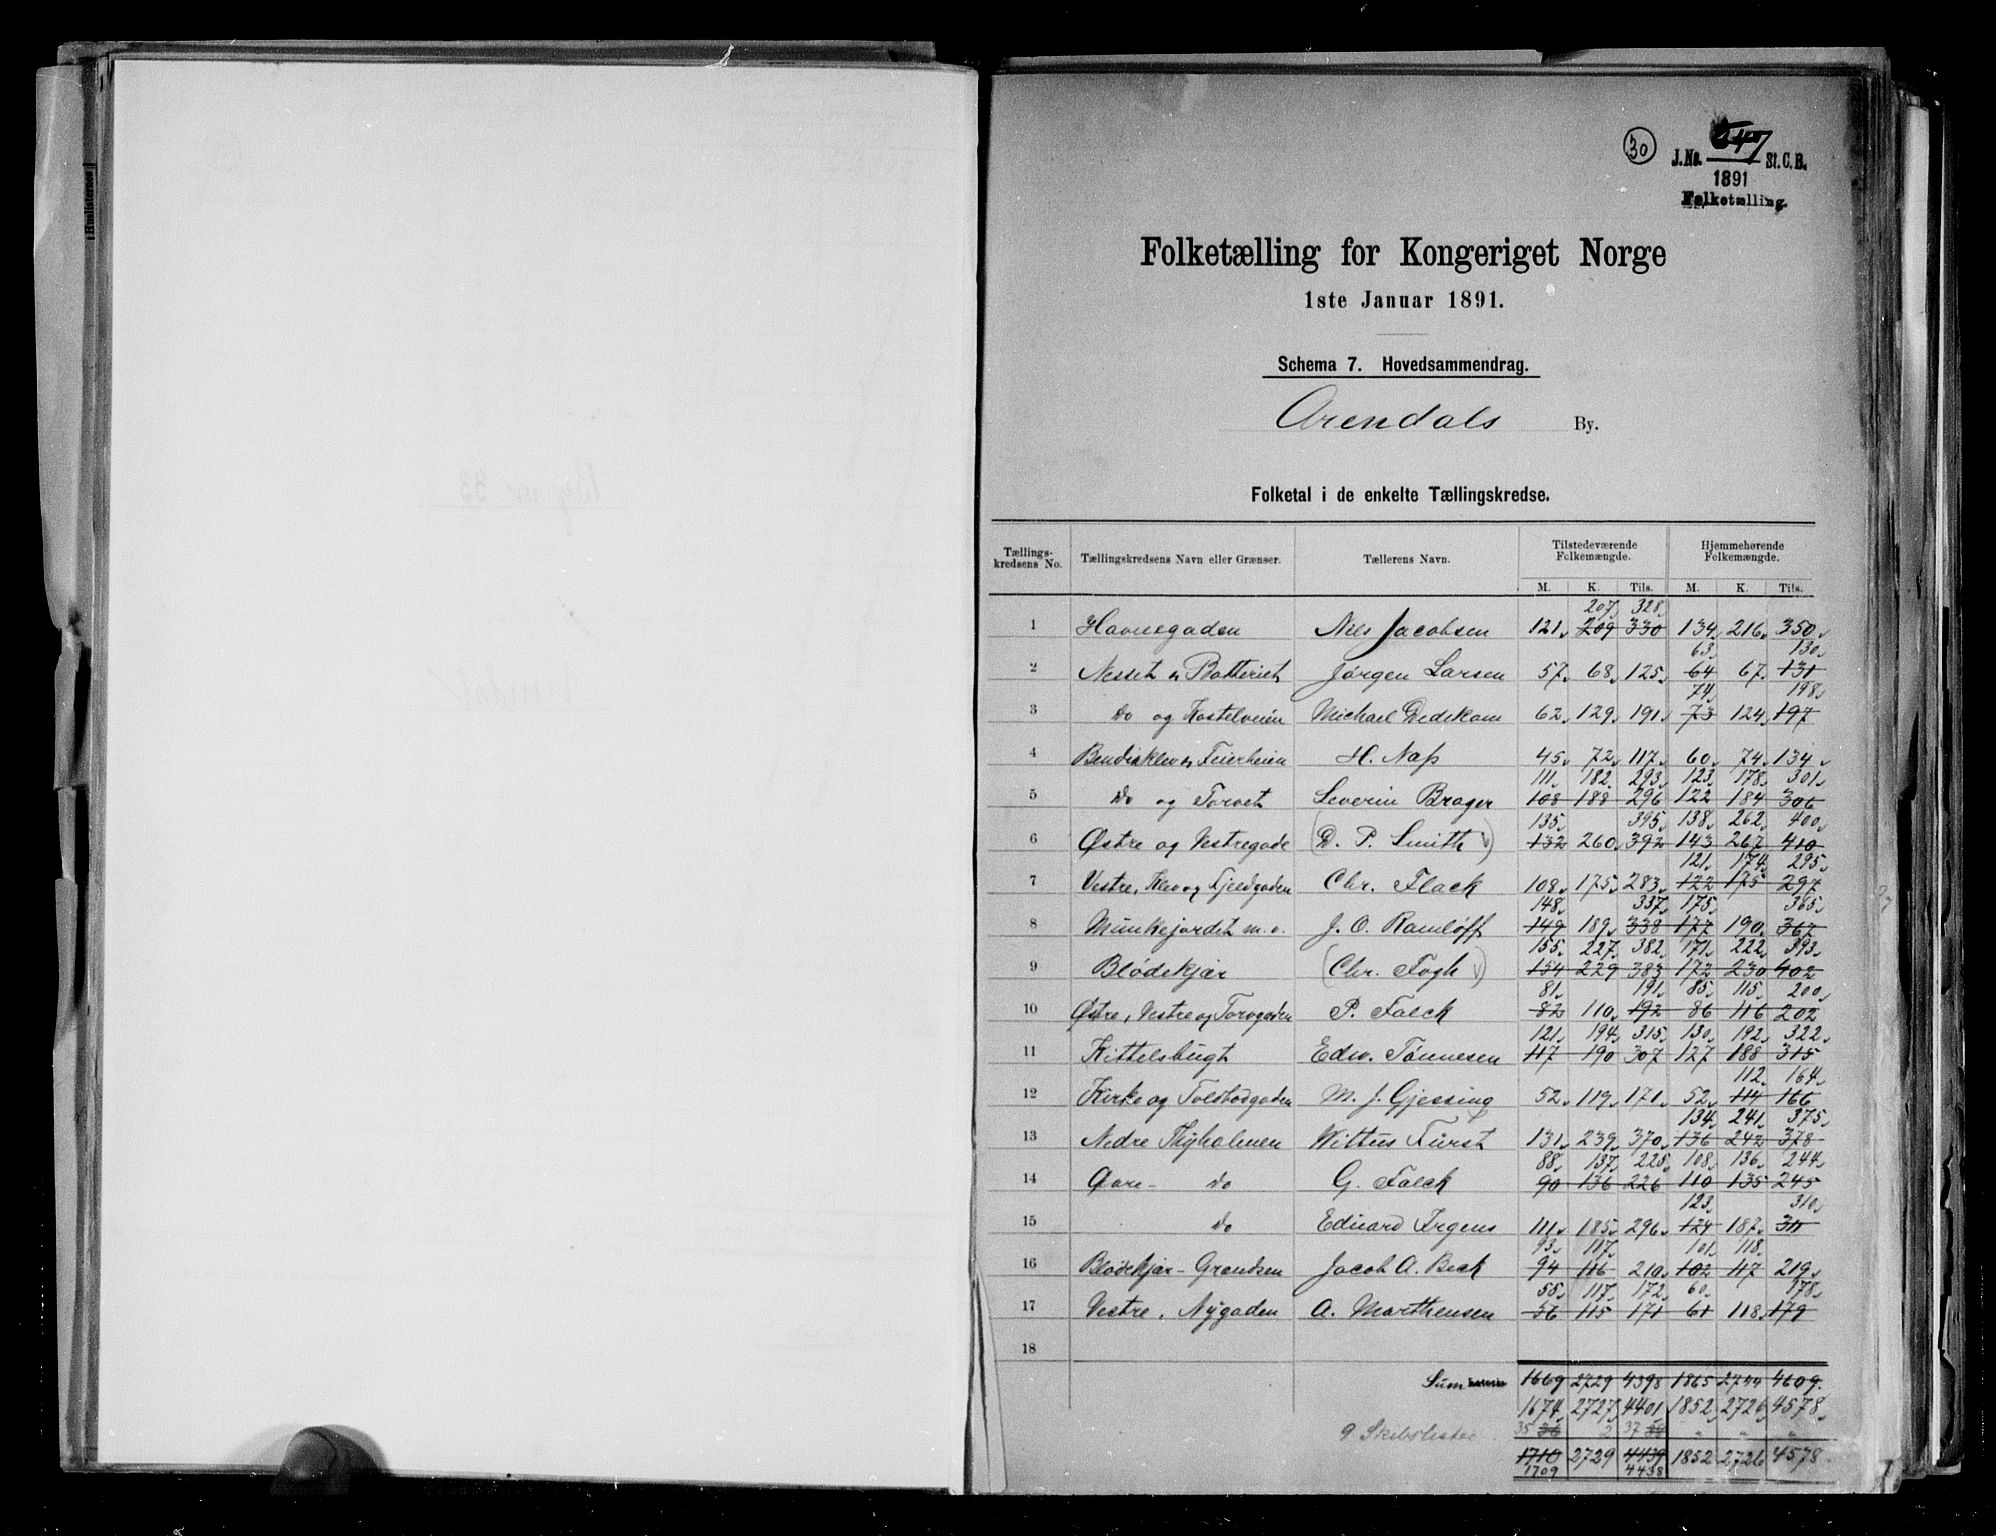 30
J.No. 547 St. C. B.
1891
Folketælling.
Folketælling for Kongeriget Norge
1ste Januar 1891.
Schema 7. Hovedsammendrag.
Arendals By.
Folketal i de enkelte Tællingskredse.
Tællingskredsens No. Tællingskredsens Navn eller Grænser. Tællerens Navn. Tilstedeværende Folkemængde. Hjemmehørende Folkemængde.
M. K. Tils. M. K. Tils.
207 328
1 Havnegaden Nils Jacobsen 121 209 330 134 216 350
63 130
2 Nesset og Batteriet Jørgen Larsen 57 68 125 64 67 131
74 198
3 Do og Kastelveien Michael Dedekam 62 129 191 73 124 197
4 Bendiksklev og Feierheien H. Nass 45 72 117 60 74 134
111 182 293 123 178 301
5 Do og Torvet Severin Brager 108 188 296 122 184 306
135 395 138 262 400
6 Østre og Vestregade (D. P. Smith) 132 260 392 143 267 410
121 174 295
7 Vestre, Klev og Fjeldgaden Chr. Flack 108 175 283 122 175 297
148 337 175 365
8 Munkejordet m. v. J. O. Ramløff 149 189 338 177 190 367
155 227 382 171 222 393
9 Blødekjær (Chr. Fogh) 154 229 383 172 230 402
81 191 85 115 200
10 Østre, Vestre og Torvgaden P. Falck 82 110 192 86 116 202
121 194 315 130 192 322
11 Kittelsbugt Edw. Tønnesen 117 190 307 127 188 315
112 164
12 Kirke og Tolbodgaden M. J. Gjessing 52 119 171 52 114 166
134 241 375
13 Nedre Thyholmen Wittus Fürst 131 239 370 136 242 378
88 137 225 108 136 244
14 Øvre - do G. Falck 90 136 226 110 135 245
123 310
15 do Eduard Irgens 111 185 296 124 187 311
93 117 101 118
16 Blødekjær-Grændsen Jacob A. Beck 94 116 210 102 117 219
55 117 172 60 178
17 Vestre, Nygaden A. Marthensen 56 115 171 61 118 179
18
Sum 1669 2729 4398 1865 2744 4609
1674 2727 4401 1852 2726 4578
9 Skibslister 35 36 2 37 38 " " "
1710 2729 4439 1852 2726 4578
1709 4438